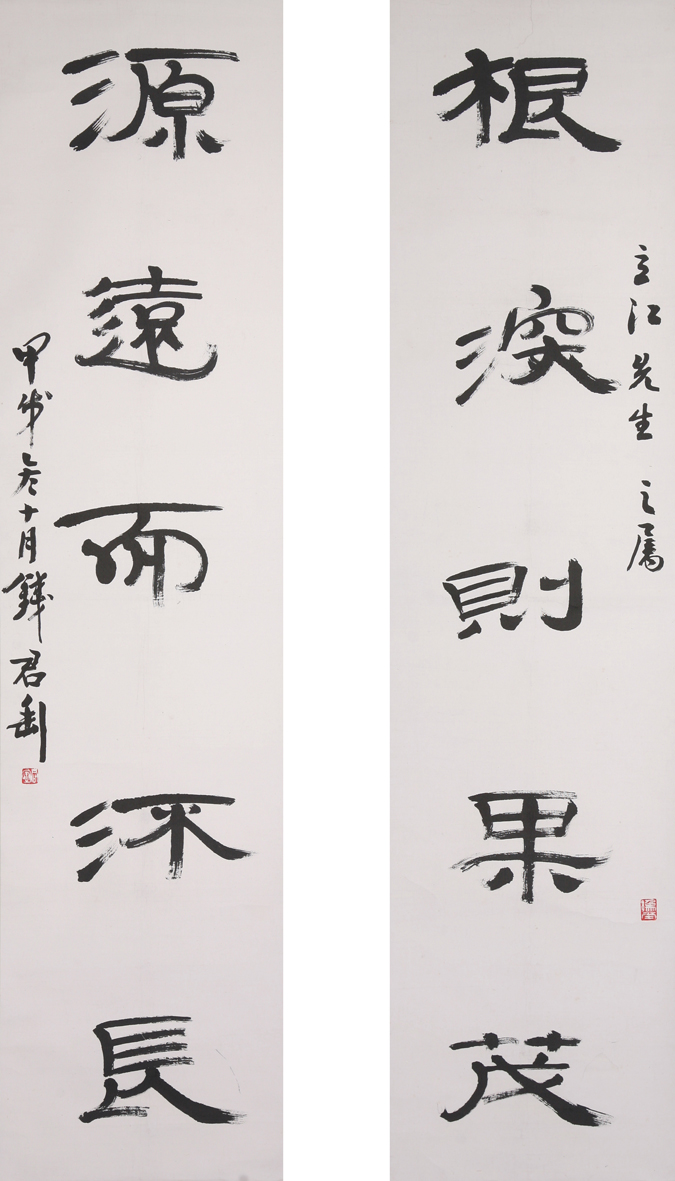 立江先生之属
根深則果茂
源遠而流長
甲戌冬十月錢君匋